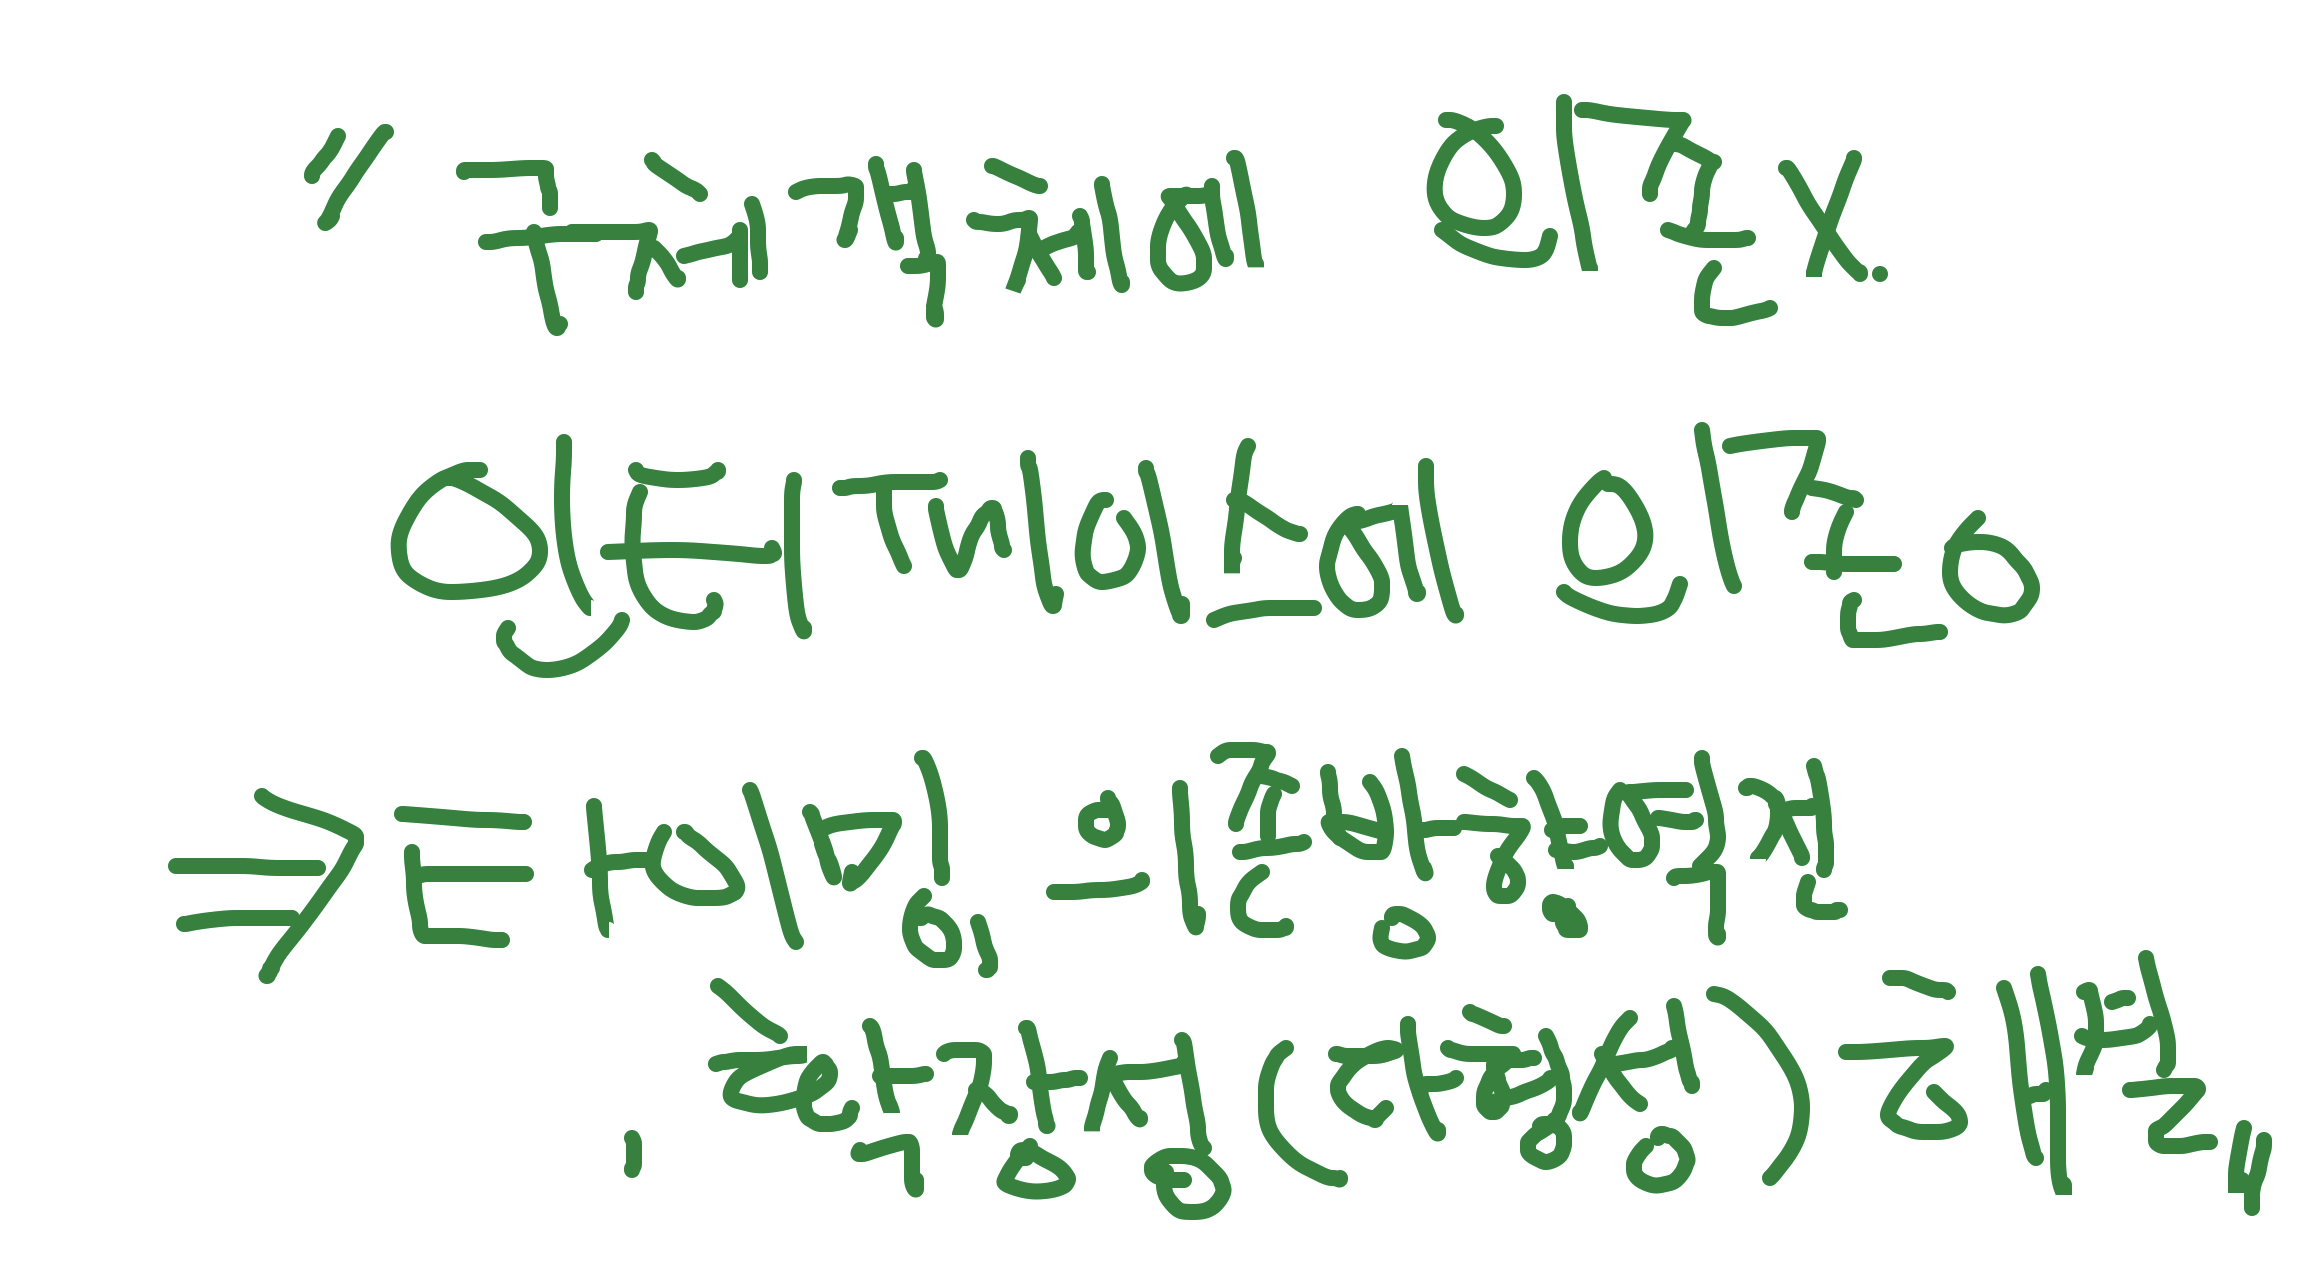 " 구체객체에 의존X.
인터페이스에 의존O
⇒ 타입이 의존방향 역전
, 확장성 (다형성) 개발"